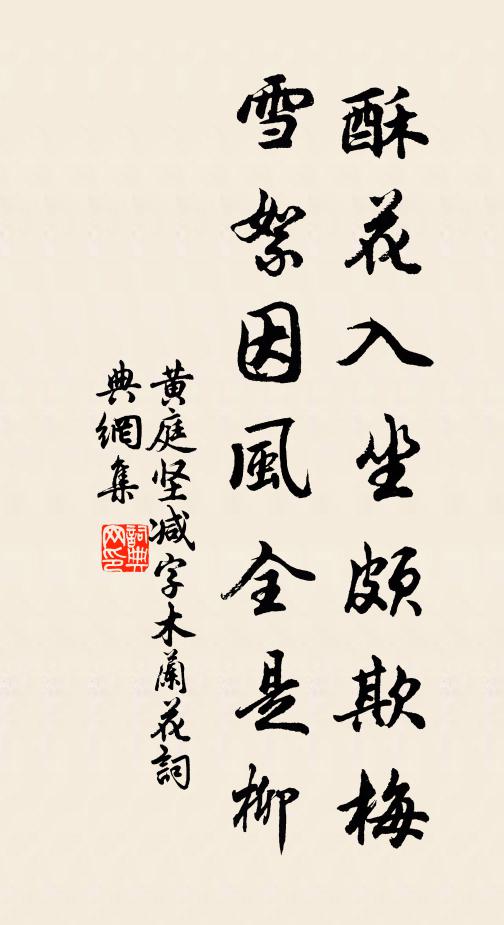 酥花入坐頗欺梅
雪絮因風全是柳
黄庭坚减字木蘭花詞
典網集
詞典網印